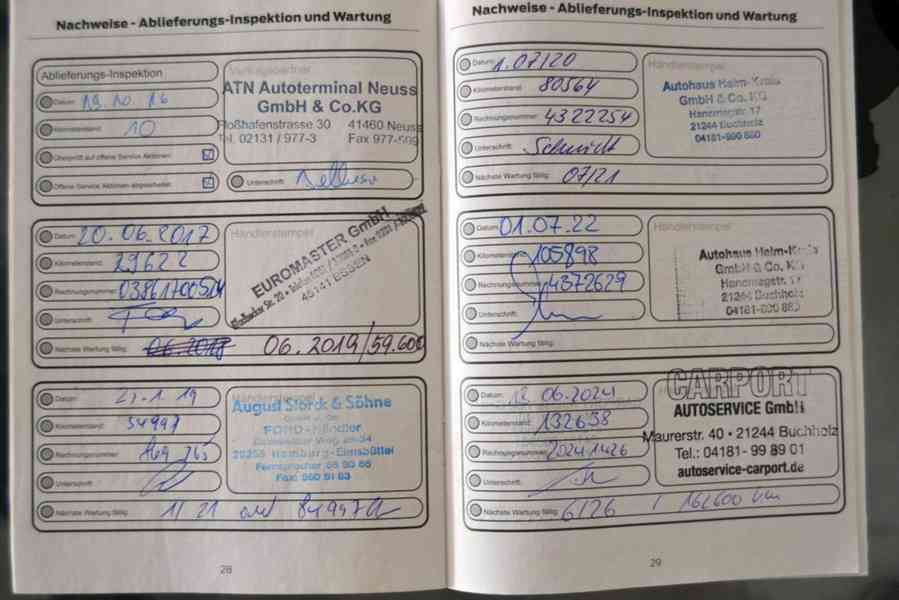 Nachweise - Ablieferungs-Inspektion und Wartung
Ablieferungs-Inspektion
Datum: 19.10.16
Kilometerstand: 10
Überprüft auf offene Service Aktionen:
Offene Service Aktionen abgearbeitet:
ATN Autoterminal Neuss
GmbH & Co.KG
Floßhafenstrasse 30 41460 Neuss
Tel. 02131 / 977-3 Fax 977-599
Unterschrift:
Datum: 20.06.2017
Kilometerstand: 29622
Rechnungsnummer:
Unterschrift:
Händlerstempel
EUROMASTER GmbH
45141 ESSEN
Nächste Wartung fällig: 06.2018 06.2019/59.600
Datum:
Kilometerstand: 54997
Rechnungsnummer:
Unterschrift:
August Storck & Söhne
FORD-Händler
Hamburg-Eimsbüttel
Nächste Wartung fällig: 11/21 84997
28
Nachweise - Ablieferungs-Inspektion und Wartung
Datum: 1.07/20
Kilometerstand: 80564
Rechnungsnummer: 4322254
Unterschrift: Schmidt
Händlerstempel
Autohaus Helm-Krais
GmbH & Co. KG
Hanomagstr. 17
21244 Buchholz
04181-900 880
Nächste Wartung fällig: 07/21
Datum: 01.07.22
Kilometerstand: 105898
Rechnungsnummer: 4372629
Unterschrift:
Händlerstempel
Autohaus Helm-Krais
GmbH & Co. KG
Hanomagstr. 17
21244 Buchholz
04181-900 880
Nächste Wartung fällig:
Datum: 13.06.2024
Kilometerstand: 132638
Rechnungsnummer: 20241426
Unterschrift:
CARPORT
AUTOSERVICE GmbH
Maurerstr. 40 • 21244 Buchholz
Tel.: 04181- 99 89 01
autoservice-carport.de
Nächste Wartung fällig: 6/26 / 162600 km
29